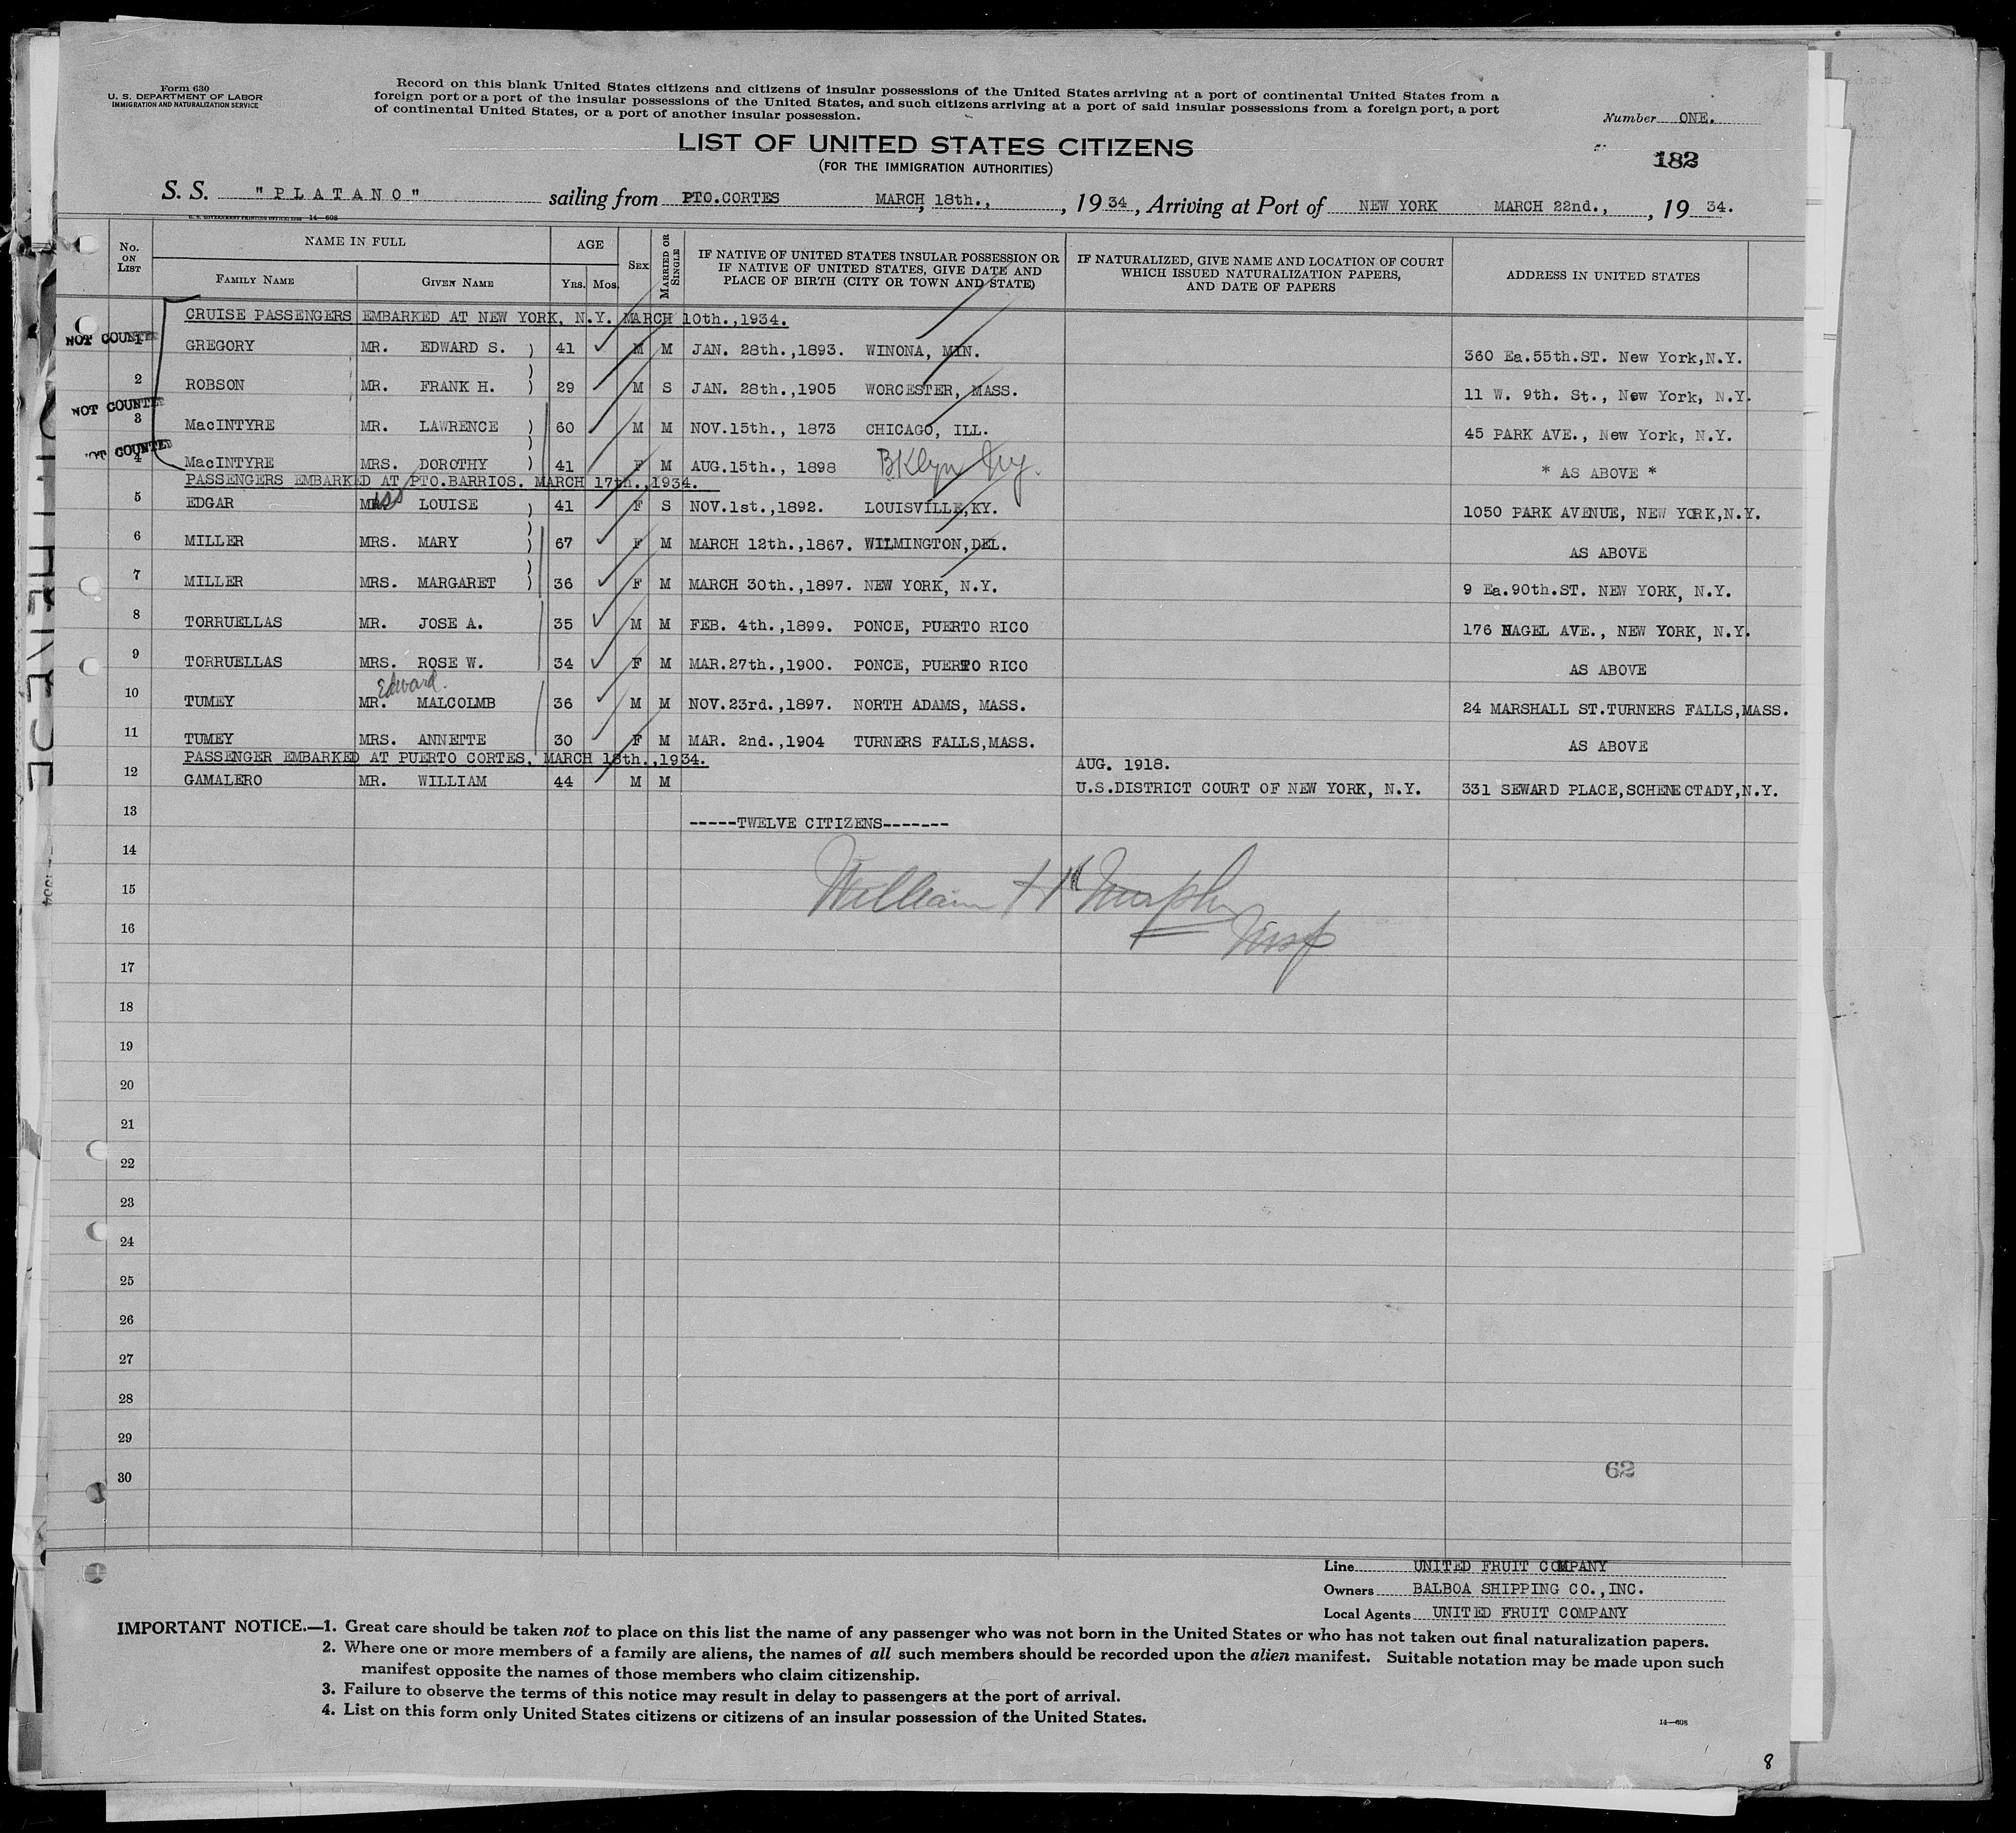 Form 630
U. S. DEPARTMENT OF LABOR
IMMIGRATION AND NATURALIZATION SERVICE
Record on this blank United States citizens and citizens of insular possessions of the United States arriving at a port of continental United States from a
foreign port or a port of the insular possessions of the United States, and such citizens arriving at a port of said insular possessions from a foreign port, a port
of continental United States, or a port of another insular possession.
Number ONE.
LIST OF UNITED STATES CITIZENS
(FOR THE IMMIGRATION AUTHORITIES)
182
S. S. "PLATANO" sailing from PTO.CORTES MARCH 18th., , 19 34 , Arriving at Port of NEW YORK MARCH 22nd., , 19 34.
U. S. GOVERNMENT PRINTING OFFICE 14—608
No. ON LIST
NAME IN FULL
FAMILY NAME
GIVEN NAME
AGE
YRS. MOS.
SEX
MARRIED OR SINGLE
IF NATIVE OF UNITED STATES INSULAR POSSESSION OR
IF NATIVE OF UNITED STATES, GIVE DATE AND
PLACE OF BIRTH (CITY OR TOWN AND STATE)
IF NATURALIZED, GIVE NAME AND LOCATION OF COURT
WHICH ISSUED NATURALIZATION PAPERS,
AND DATE OF PAPERS
ADDRESS IN UNITED STATES
CRUISE PASSENGERS EMBARKED AT NEW YORK, N.Y. MARCH 10th.,1934.
NOT COUNTED
1 GREGORY MR. EDWARD S. ) 41 M M JAN. 28th.,1893. WINONA, MIN. 360 Ea.55th.ST. New York,N.Y.
2 ROBSON MR. FRANK H. ) 29 M S JAN. 28th.,1905 WORCESTER, MASS. 11 W. 9th. St., New York, N.Y.
NOT COUNTED
3 MacINTYRE MR. LAWRENCE ) 60 M M NOV.15th., 1873 CHICAGO, ILL. 45 PARK AVE., New York, N.Y.
NOT COUNTED
4 MacINTYRE MRS. DOROTHY ) 41 F M AUG.15th., 1898 BKlyn Ny. * AS ABOVE *
PASSENGERS EMBARKED AT PTO.BARRIOS. MARCH 17th.,1934.
5 EDGAR Miss LOUISE ) 41 F S NOV.1st.,1892. LOUISVILLE,KY. 1050 PARK AVENUE, NEW YORK,N.Y.
6 MILLER MRS. MARY ) 67 F M MARCH 12th.,1867. WILMINGTON,DEL. AS ABOVE
7 MILLER MRS. MARGARET ) 36 F M MARCH 30th.,1897. NEW YORK, N.Y. 9 Ea.90th.ST. NEW YORK, N.Y.
8 TORRUELLAS MR. JOSE A. 35 M M FEB. 4th.,1899. PONCE, PUERTO RICO 176 NAGEL AVE., NEW YORK, N.Y.
9 TORRUELLAS MRS. ROSE W. 34 F M MAR.27th.,1900. PONCE, PUERTO RICO AS ABOVE
Edward.
10 TUMEY MR. MALCOLMB 36 M M NOV.23rd.,1897. NORTH ADAMS, MASS. 24 MARSHALL ST.TURNERS FALLS,MASS.
11 TUMEY MRS. ANNETTE 30 F M MAR. 2nd.,1904 TURNERS FALLS,MASS. AS ABOVE
PASSENGER EMBARKED AT PUERTO CORTES, MARCH 18th.,1934.
AUG. 1918.
12 GAMALERO MR. WILLIAM 44 M M U.S.DISTRICT COURT OF NEW YORK, N.Y. 331 SEWARD PLACE,SCHENECTADY,N.Y.
13 -----TWELVE CITIZENS-------
14
15 William H Murphy
16 Insp
17
18
19
20
21
22
23
24
25
26
27
28
29
30
62
Line UNITED FRUIT COMPANY
Owners BALBOA SHIPPING CO.,INC.
Local Agents UNITED FRUIT COMPANY
IMPORTANT NOTICE.—1. Great care should be taken not to place on this list the name of any passenger who was not born in the United States or who has not taken out final naturalization papers.
2. Where one or more members of a family are aliens, the names of all such members should be recorded upon the alien manifest. Suitable notation may be made upon such
manifest opposite the names of those members who claim citizenship.
3. Failure to observe the terms of this notice may result in delay to passengers at the port of arrival.
4. List on this form only United States citizens or citizens of an insular possession of the United States.
14—608
8